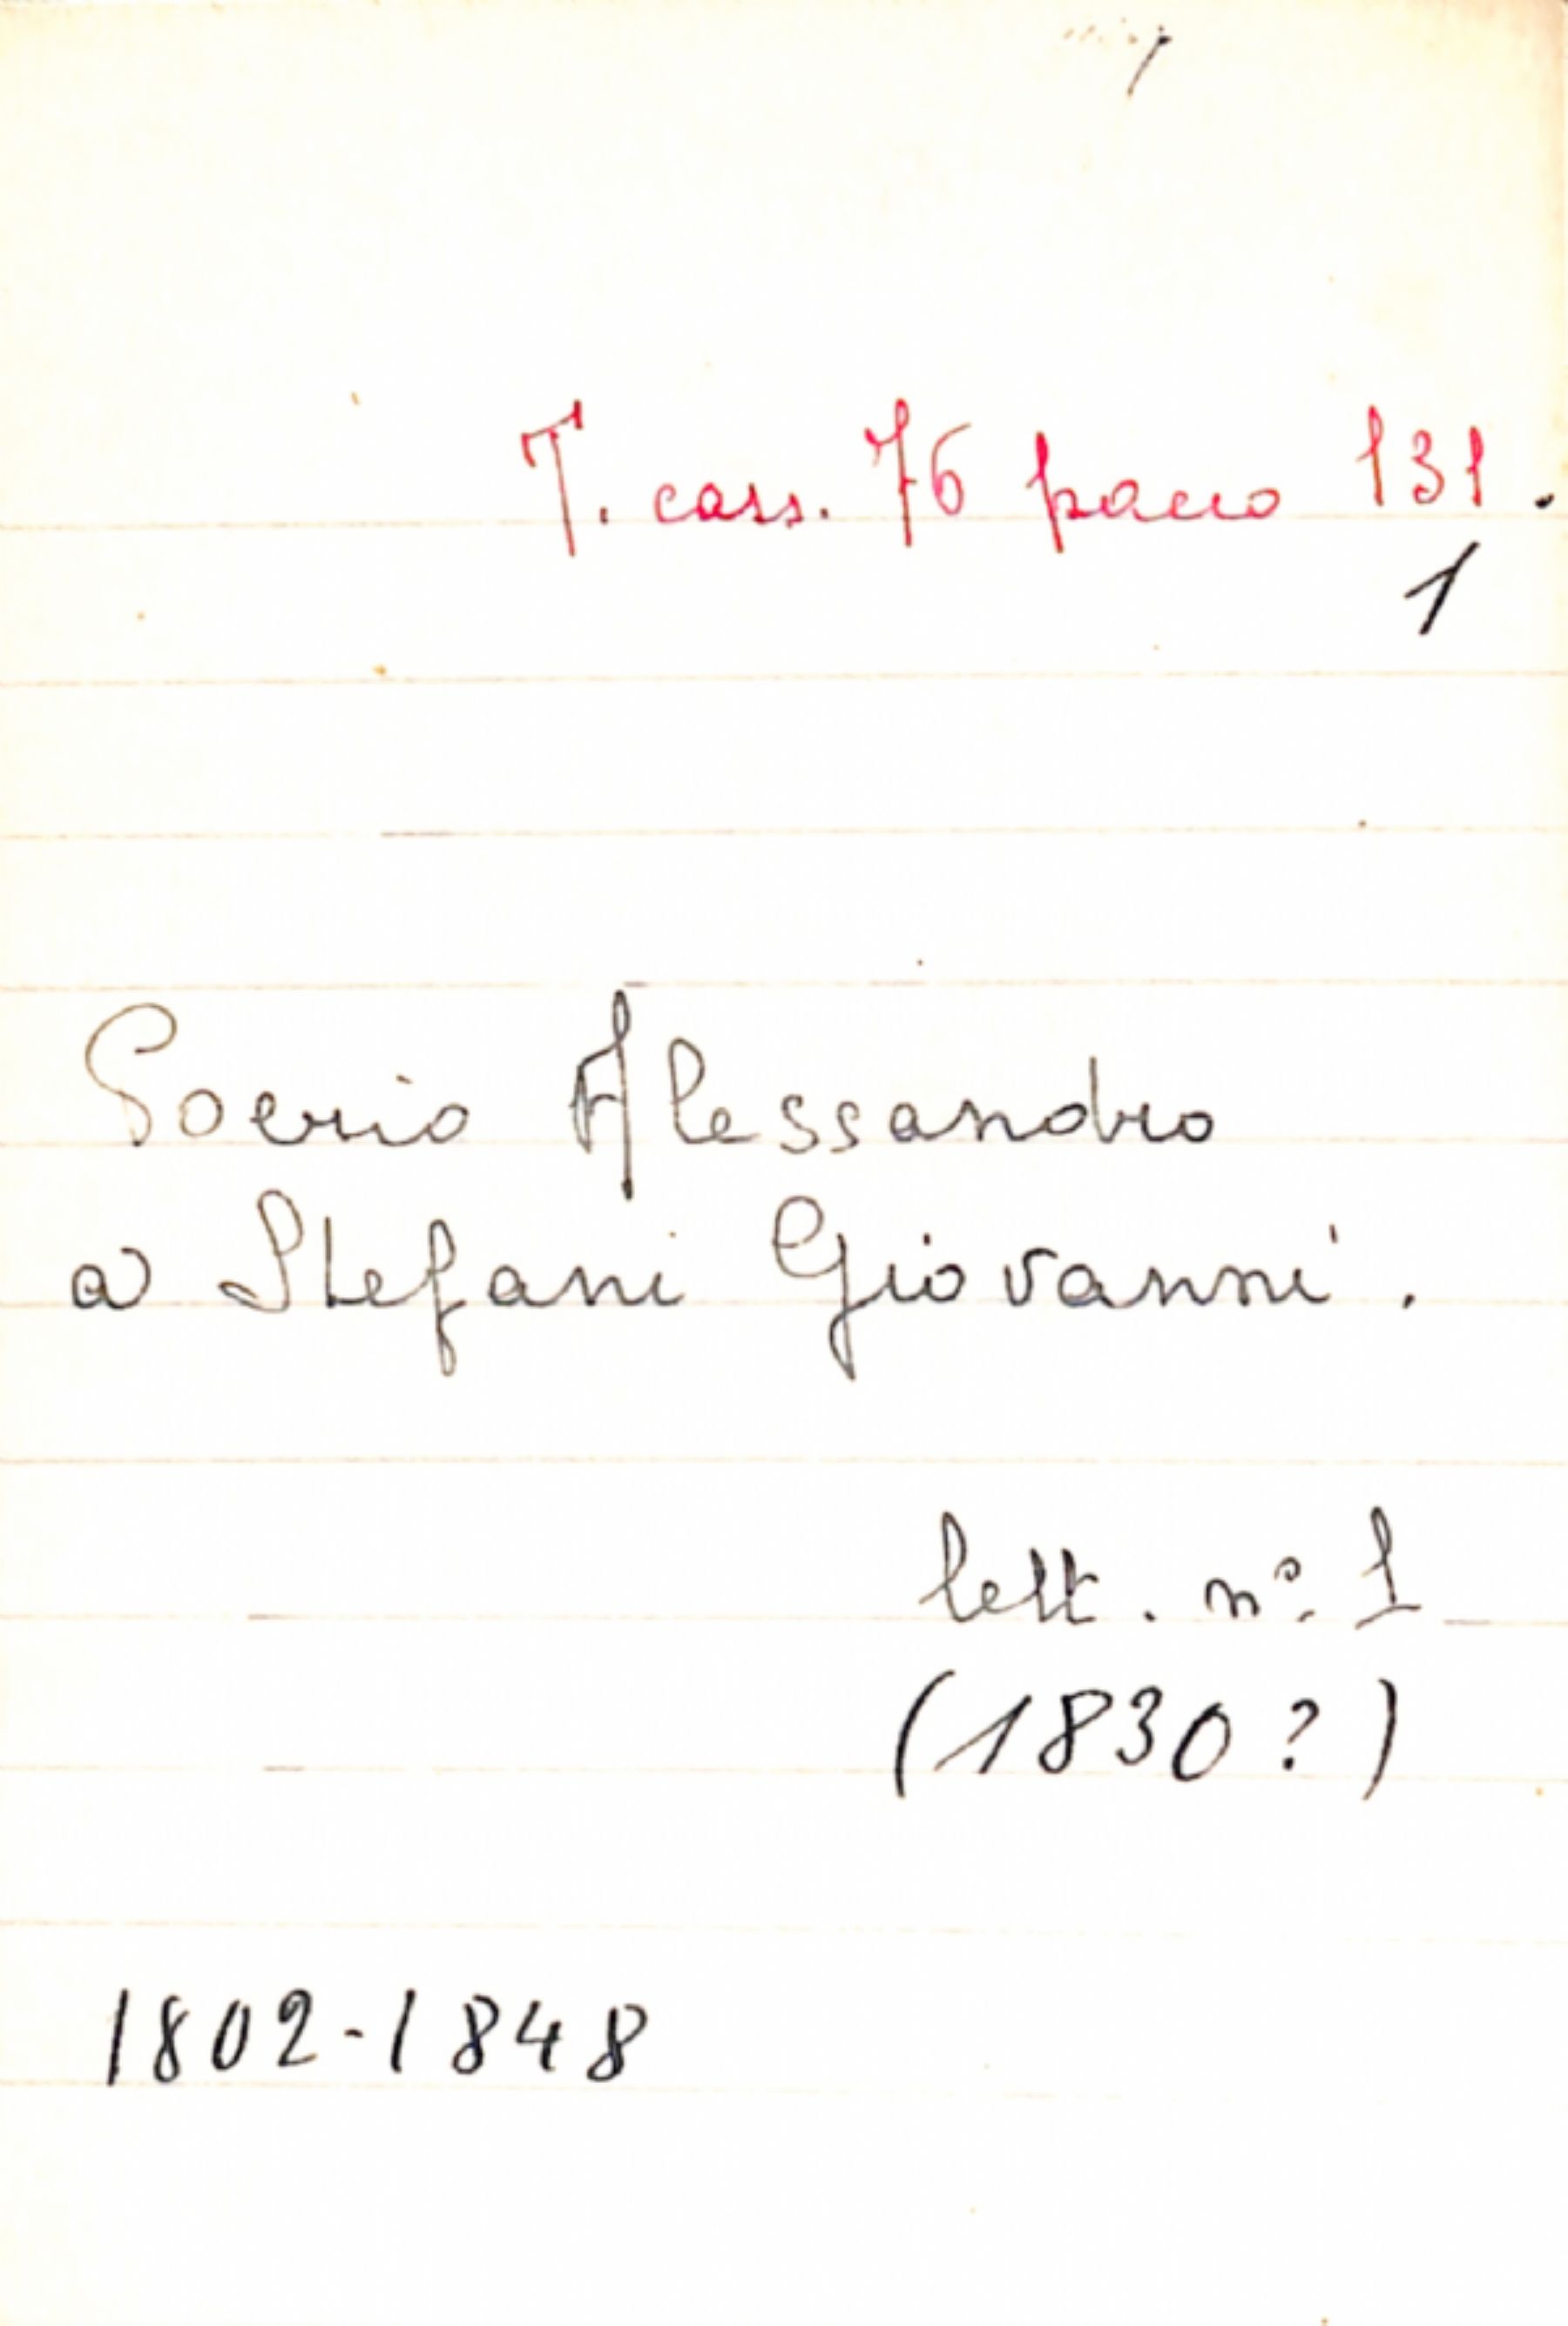 T. cass. 76 pacco 131.
1
Poerio Alessandro
a Stefani Giovanni.
lett. nº. 1
(1830?)
1802-1848